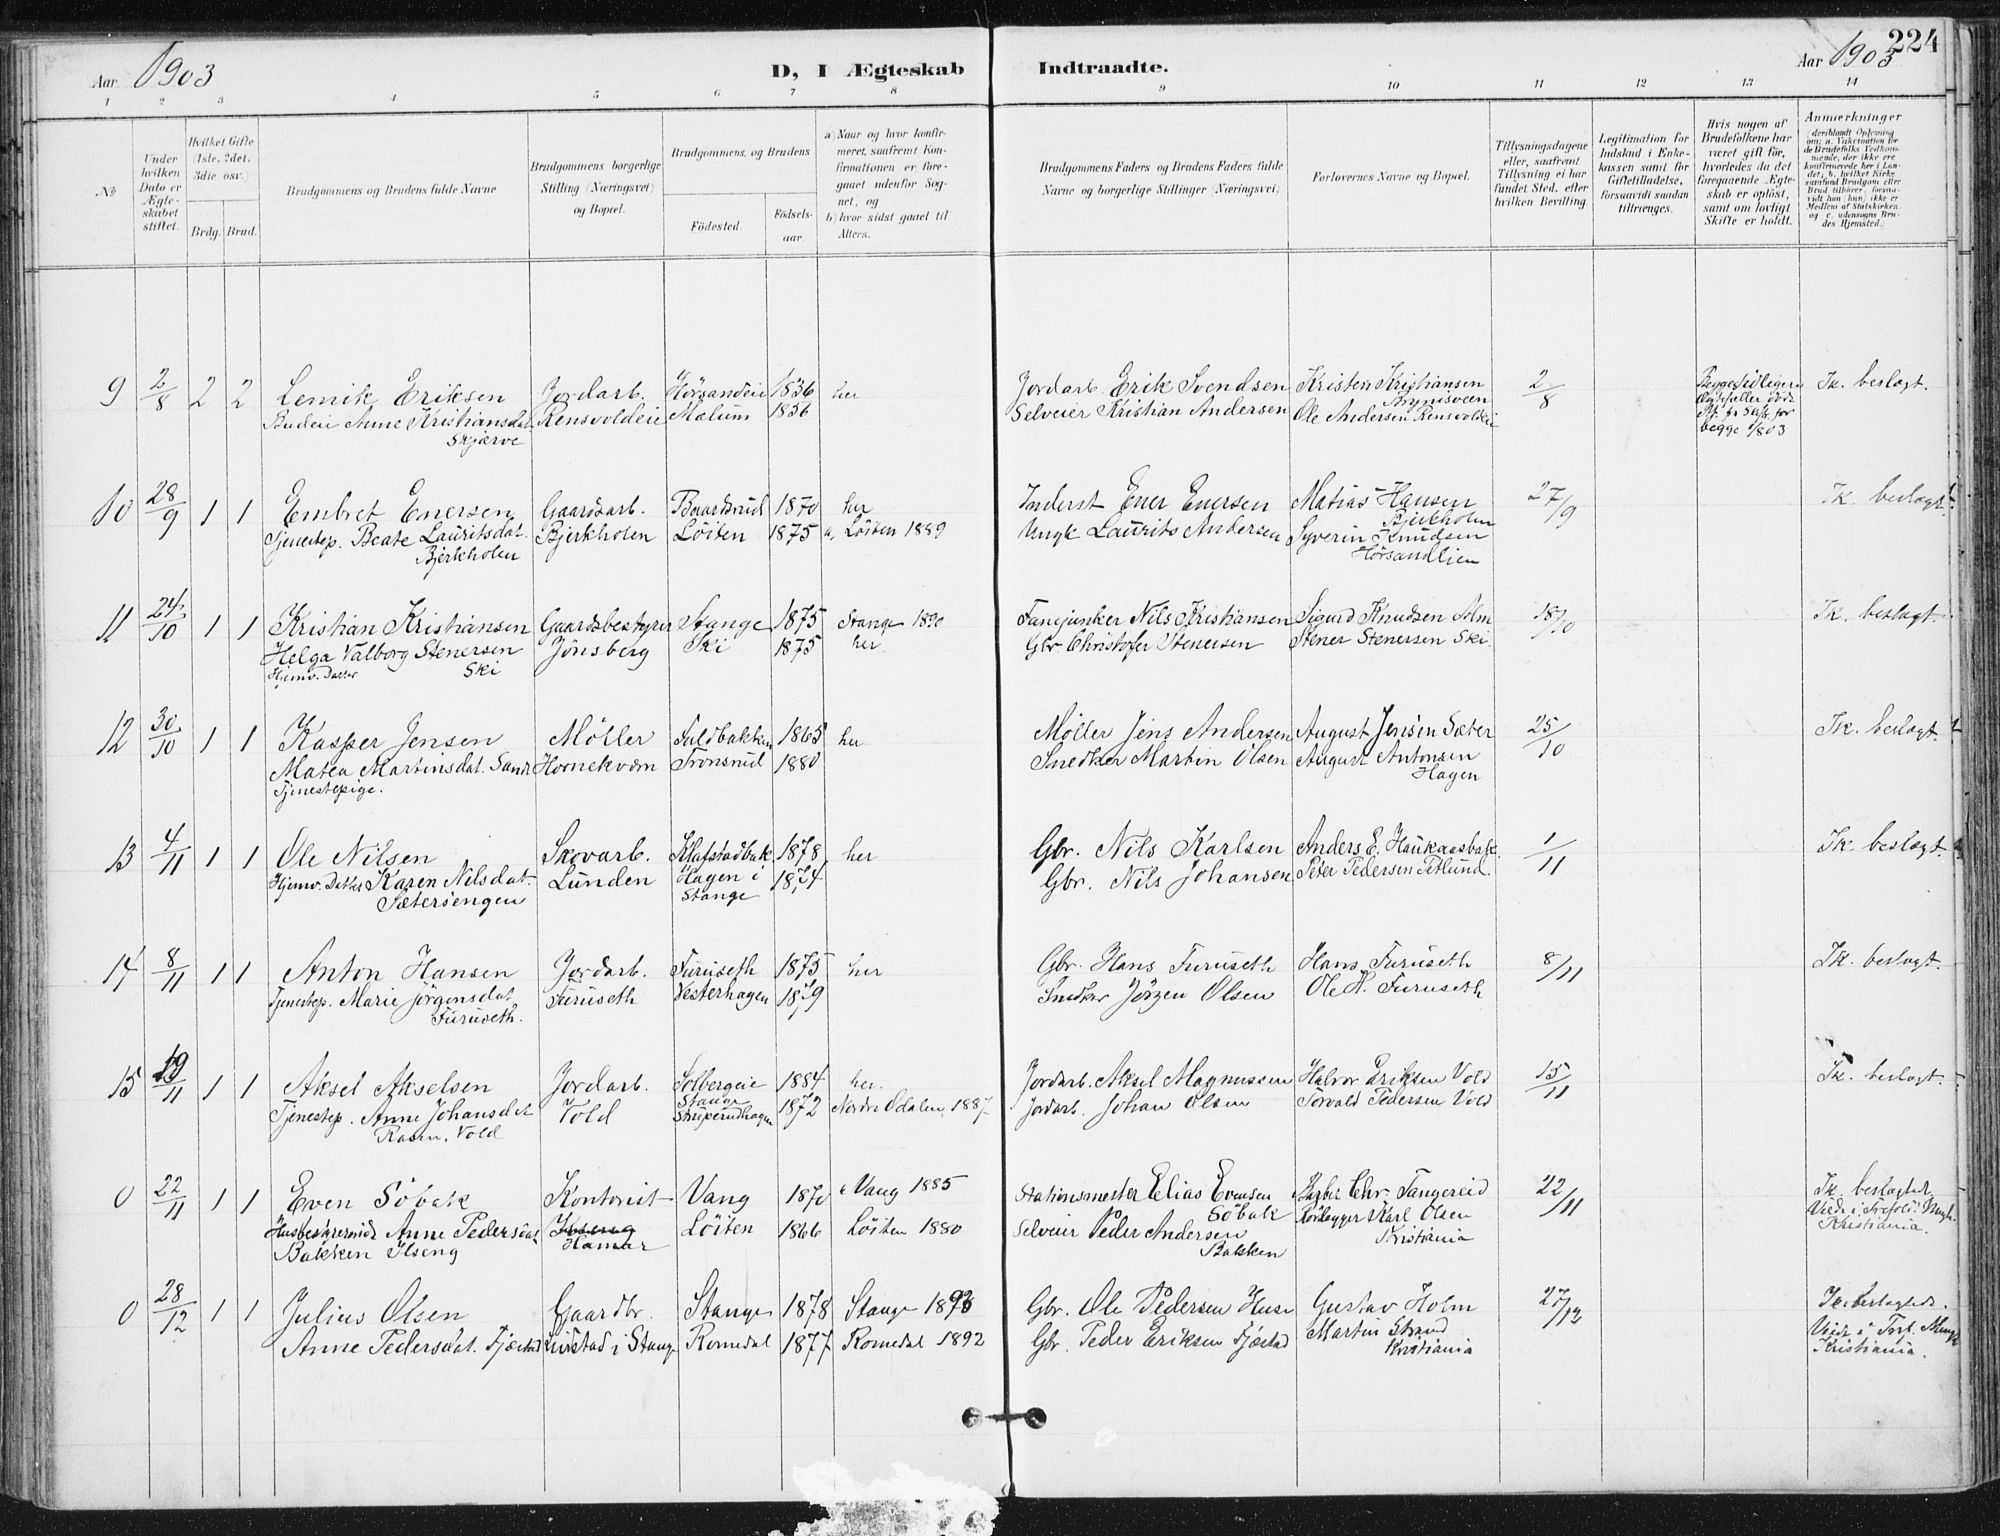 224
Aar 1903
D, I Ægteskab Indtraadte.
Aar 1903
1 2 3 4 5 6 7 8 9 10 11 12 13 14
№
Under hvilken Dato er Ægteskabet stiftet.
Hvilket Gifte (1ste, 2det, 3die osv.)
Brdg. Brud.
Brudgommens og Brudens fulde Navne
Brudgommens borgerlige Stilling (Næringsvei) og Bopæl.
Brudgommens og Brudens
Fødested.
Fødselsaar.
a) Naar og hvor konfirmeret, saafremt Konfirmationen er foregaaet udenfor Sognet, og
b) hvor sidst gaaet til Alters.
Brudgommens Faders og Brudens Faders fulde Navne og borgerlige Stillinger (Næringsvei)
Forlovernes Navne og Bopæl.
Tillysningsdagene eller, saafremt Tillysning ei har fundet Sted, efter hvilken Bevilling.
Legitimation for Indskud i Enkekassen samt for Giftetilladelse, forsaavidt saadan tiltrænges.
Hvis nogen af Brudefolkene har været gift før, hvorledes da det foregaaende Ægteskab er opløst, samt om lovligt Skifte er holdt.
Anmærkninger
(deriblandt Oplysning om: a. Vakcination for de Brudefolks Vedkommende, der ikke ere konfirmerede her i Landet; b. hvilket Kirkesamfund Brudgom eller Brud tilhører, forsaavidt han (hun) ikke er Medlem af Statskirken, og c. udensogns Brudes Hjemsted.)
9 2/8 2 2 Lemik Eriksen Jordarb. Hörsandeie 1836 her Jordarb. Erik Svendsen Kristen Kristiansen 2/8 Ik. beslægt.
Budeie Anne Kristiansdat. Rensvoldeie Mælum 1856 Selveier Kristian Andersen Ole Andersen Rensvoldeie
Skjærve
begge 1/8 03
10 28/9 1 1 Embret Enersen Gaardsarb. Baardsrud 1870 her Inderst Ener Enersen Matias Hansen 27/9 Ik. beslægt.
Bjerkholen
Tjenestep. Beate Lauritsdat. Bjerkholen Löiten 1875 a, Löiten 1889 Ungk. Laurits Andersen Syverin Knudsen
Bjerkholen Hörsandlien
11 24/10 1 1 Kristian Kristiansen Gaardsbestyrer Stange 1875 Stange 1890 Fanejunker Nils Kristiansen Sigurd Knudsen Alm 18/10 Ik. beslægt.
Helga Valborg Stenersen Jönsberg Ski 1875 her Gbr. Christofer Stenersen Stener Stenersen Ski.
Hjemv. Datter Ski
12 30/10 1 1 Kasper Jensen Möller Suldbakken 1865 her Möller Jens Andersen August Jensen Sæter 25/10 Ik. beslægt.
Matea Martinsdat. Sand Hornekværn Tronsrud 1880 Snedker Martin Olsen August Antonsen
Tjenestepige. Hagen
13 4/11 1 1 Ole Nilsen Skovarb. Klafstadbak. 1878 her Gbr. Nils Karlsen Anders E. Haukaasbak. 1/11 Ik. beslægt.
Hjemv. Datter Karen Nilsdat. Lunden Hagen i 1874 Gbr. Nils Johansen Peter Pedersen Petlund.
Sætersengen Stange
14 8/11 1 1 Anton Hansen Jordarb. Furuseth 1875 her Gbr. Hans Furuseth Hans Furuseth 8/11 Ik. beslægt.
Tjenestep. Marie Jörgensdat. Furuseth Vesterhagen 1879 Snedker Jörgen Olsen Ole H. Furuseth
Furuseth.
15 19/11 1 1 Aksel Akselsen Jordarb. Solbergeie 1884 her. Jordarb. Aksel Magnussen Halvor Eriksen Vold 15/11 Ik. beslægt.
Tjenestep. Anne Johansdat. Vold Stange 1872 Nordre Odalen 1887 Jordarb. Johan Olsen Torvald Pedersen Vold
Vold
0 22/11 1 1 Even Söbak Kontorist Vang 1870 Vang 1885 Stationsmester Elias Evensen Barber Chr. Tangereid 22/11 Ik. beslægtet
Söbak
Husbestyrerinde Anne Pedersdat. Ilseng Löiten 1866 Löiten 1880 Selveier Peder Andersen Karl Olsen
Bakken Ilseng Hamar Bakken Kristiania Kristiania.
0 28/12 1 1 Julius Olsen Gaardbr. Stange 1878 Stange 1893 Gbr. Ole Pedersen Huse Gustav Holm 27/12 Ik. beslægtede.
Anne Pedersdat. Fjæstad i Stange Romedal 1877 Romedal 1892 Gbr. Peder Eriksen Fjæstad Martin Strand
Kristiania Kristiania.